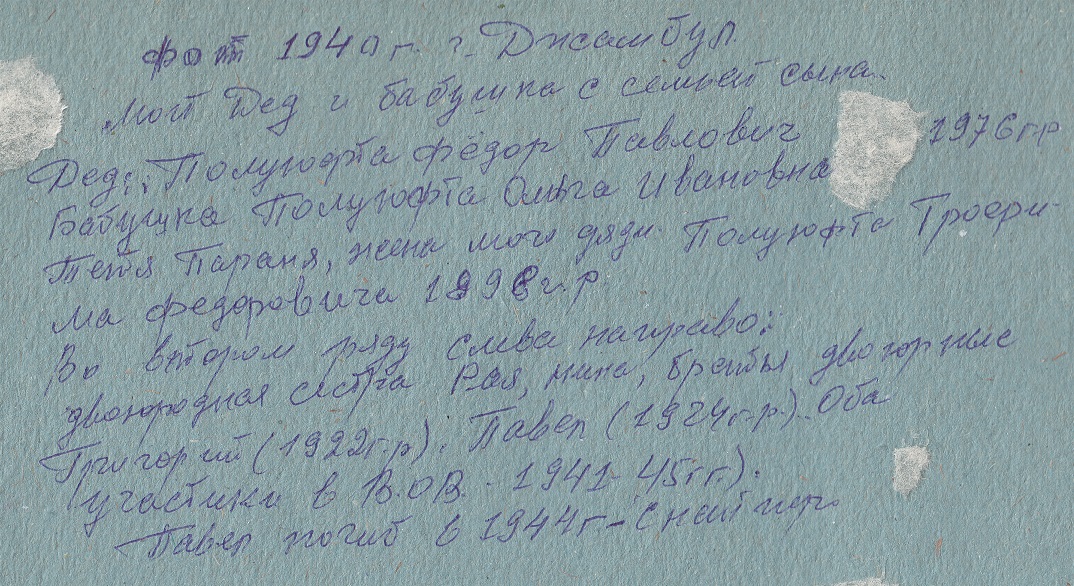 фот 1940 г. г. Джамбул.
Мой Дед и бабушка с семьей сына.
Дед: Полуюфта Фёдор Павлович 1976 г.р
Бабушка Полуюфта Ольга Ивановна
Тетя Параня, жена моего дяди Полуюфта Трофи-
ма Федоровича 1898 г.р.
Во втором ряду слева направо:
двоюродная сестра Рая, Нина, братья двоюрные
Григорий (1922 г.р). Павел (1924 г.р). Оба
участики в В.О.В. - 1941-45 гг).
Павел погиб в 1944 г - снайпер